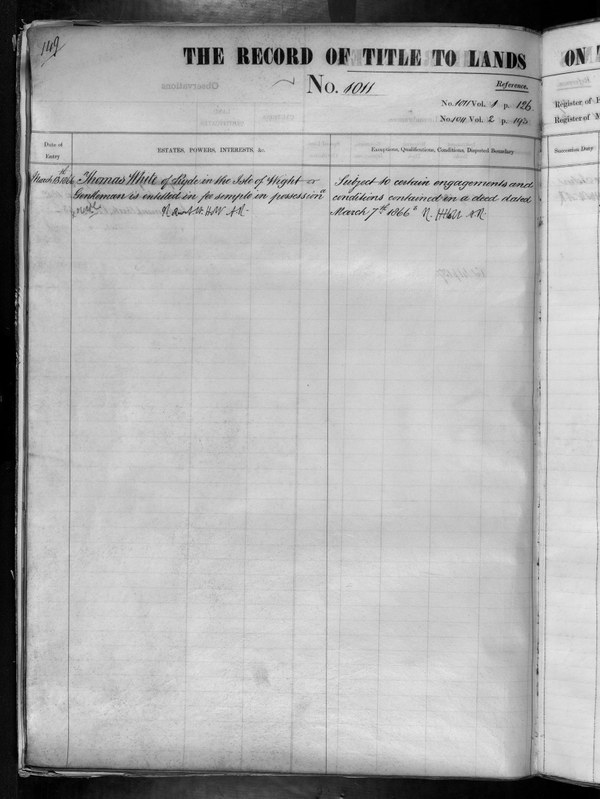 149
THE RECORD OF TITLE TO LANDS
No. 1011
Reference.
No. 1011 Vol. 1 p. 126
No. 1011 Vol. 2 p. 193
Date of
Entry
ESTATES, POWERS, INTERESTS, &c.
Exceptions, Qualifications, Conditions, Disputed Boundary
March 13th 1866 Thomas White of Ryde in the Isle of Wight
Gentleman is entitled in fee simple in possession
Subject to certain engagements and
conditions contained in a deed dated
March 7th 1866
ON
Reference.
Register of
Register of
Succession Duty